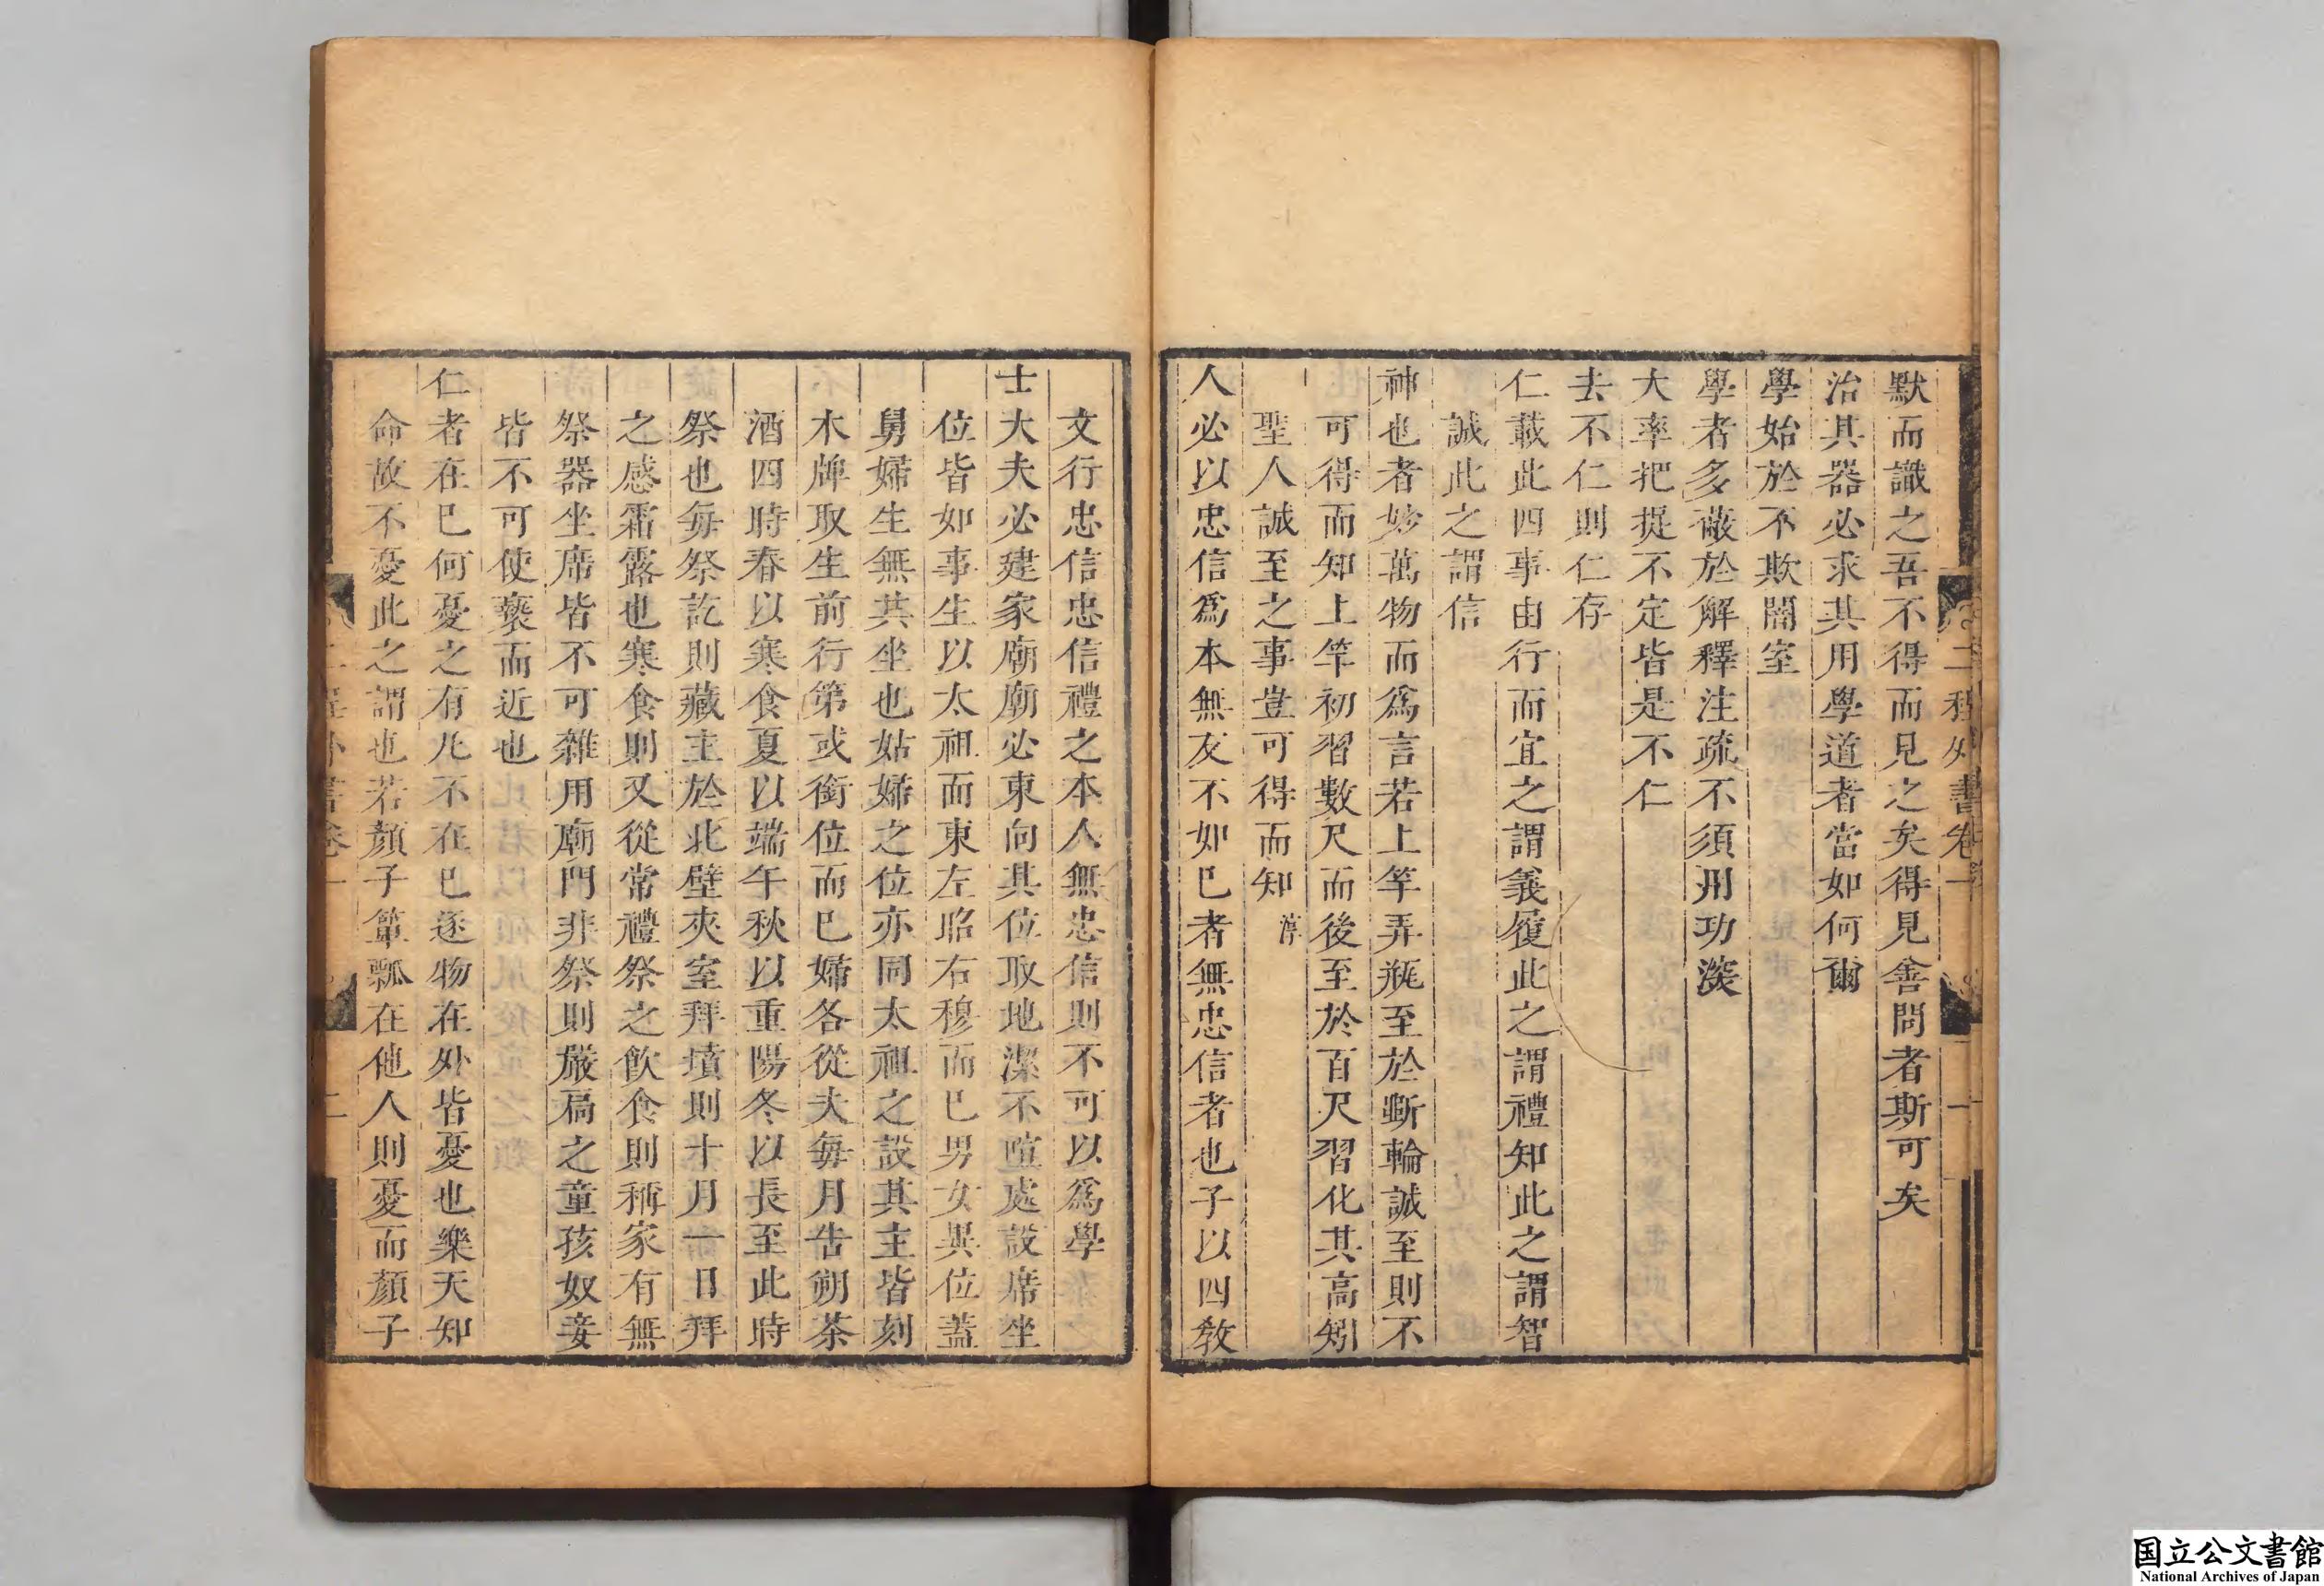 二程外書卷一
一
默而識之吾不得而見之矣得見善問者斯可矣
治其器必求其用學道者當如何爾
學始於不欺闇室
學者多蔽於解釋注疏不須用功深
大率把捉不定皆是不仁
去不仁則仁存
仁載此四事由行而宜之謂義履此之謂禮知此之謂智
誠此之謂信
神也者妙萬物而爲言若上竿弄瓶至於斲輪誠至則不
可得而知上竿初習數尺而後至於百尺習化其高矧
聖人誠至之事豈可得而知 淳
人必以忠信爲本無友不如已者無忠信者也子以四敎
文行忠信忠信禮之本人無忠信則不可以爲學
士大夫必建家廟廟必東向其位取地潔不喧處設席坐
位皆如事生以太祖而東左昭右穆而已男女異位蓋
舅婦生無共坐也姑婦之位亦同太祖之設其主皆刻
木牌取生前行第或銜位而已婦各從夫每月告朔茶
酒四時春以寒食夏以端午秋以重陽冬以長至此時
祭也每祭訖則藏主於北壁夾室拜墳則十月一日拜
之感霜露也寒食則又從常禮祭之飮食則稱家有無
祭器坐席皆不可雜用廟門非祭則嚴扃之童孩奴妾
皆不可使褻而近也
仁者在已何憂之有凡不在已逐物在外皆憂也樂天知
命故不憂此之謂也若顏子簞瓢在他人則憂而顏子
二程外書卷一
二
国立公文書館
National Archives of Japan